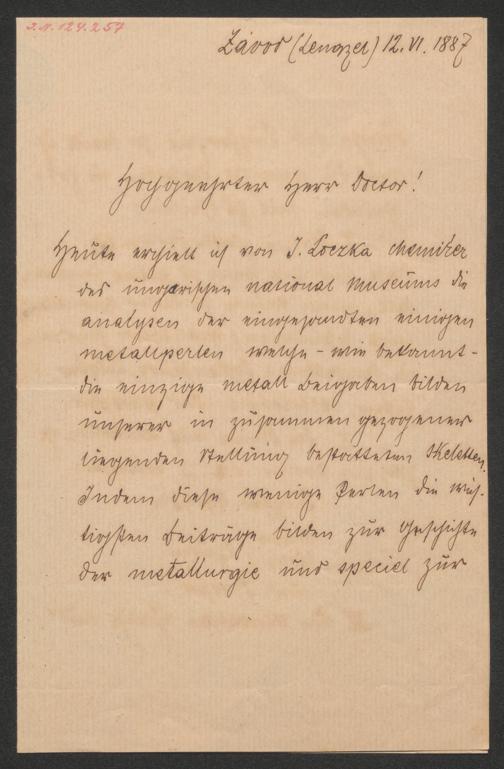 I.N. 124.257
Závod (Lengyel) 12. VI. 1887
Hochgeehrter Herr Doctor!
Heute erhielt ich von J. Loczka Chemiker
des ungarischen national Museums die
analysen der eingesandten einigen
metallperlen welche – wie bekannt –
die einzige metall Beigaben bilden
unserer in zusammen gezogener
liegenden Stellung bestatteten Skeletten.
Indem diese wenige Perlen die wich-
tigsten Beiträge bilden zur Geschichte
der metallurgie und speciel zur